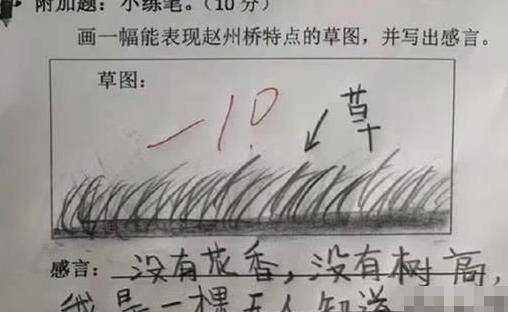 附加题：小练笔。（10分）
画一幅能表现赵州桥特点的草图，并写出感言。
草图：
-10
草
感言：没有花香，没有树高，
我是一棵无人知道